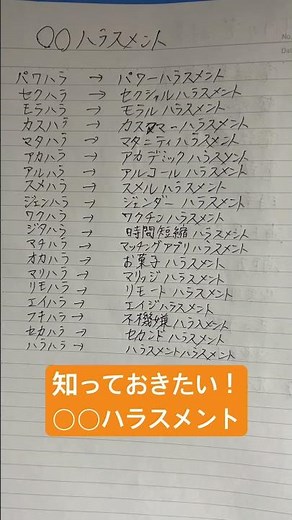 ○○ハラスメント
No.
パワハラ → パワーハラスメント
セクハラ → セクシャルハラスメント
モラハラ → モラルハラスメント
カスハラ → カスタマーハラスメント
マタハラ → マタニティハラスメント
アカハラ → アカデミックハラスメント
アルハラ → アルコールハラスメント
スメハラ → スメルハラスメント
ジェンハラ → ジェンダーハラスメント
ワクハラ → ワクチンハラスメント
ジタハラ → 時間短縮ハラスメント
マチハラ → マッチングアプリハラスメント
オカハラ → お菓子ハラスメント
マリハラ → マリッジハラスメント
リモハラ → リモートハラスメント
エイハラ → エイジハラスメント
フキハラ → 不機嫌ハラスメント
セカハラ → セカンドハラスメント
ハラハラ → ハラスメントハラスメント
知っておきたい！
○○ハラスメント